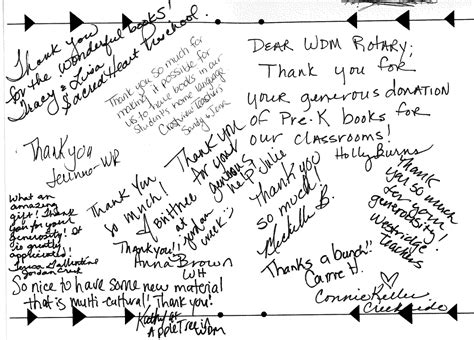 Thank you
for the wonderful books!
Tracy & Lisa
Sacred Heart Preschool
Thank you so much for
making it possible for
us to have books in our
students home language
Crestview Teachers
Sandy & Jena
DEAR WDM ROTARY,
THANK YOU FOR
YOUR GENEROUS DONATION
OF PRE-K BOOKS FOR
OUR CLASSROOMS!
HOLLY BURNS
Thank you
WR
What an
amazing
gift! Thank
you for your
generosity! It
is greatly
appreciated!
Jordan Creek
Thank You
so much!
Brittnee
Thank you
for your
generous
help Julie
Thank you!!
Anna Brown
WH
Thank you
so much!
Michelle B.
Thank
you so much
for your
generosity!
Westridge
Teachers
Thanks a bunch!!
Carre H.
Connie Keller
Creekside
So nice to have some new material
that is multi-cultural! Thank you!
Kathy at
AppleTree WDM